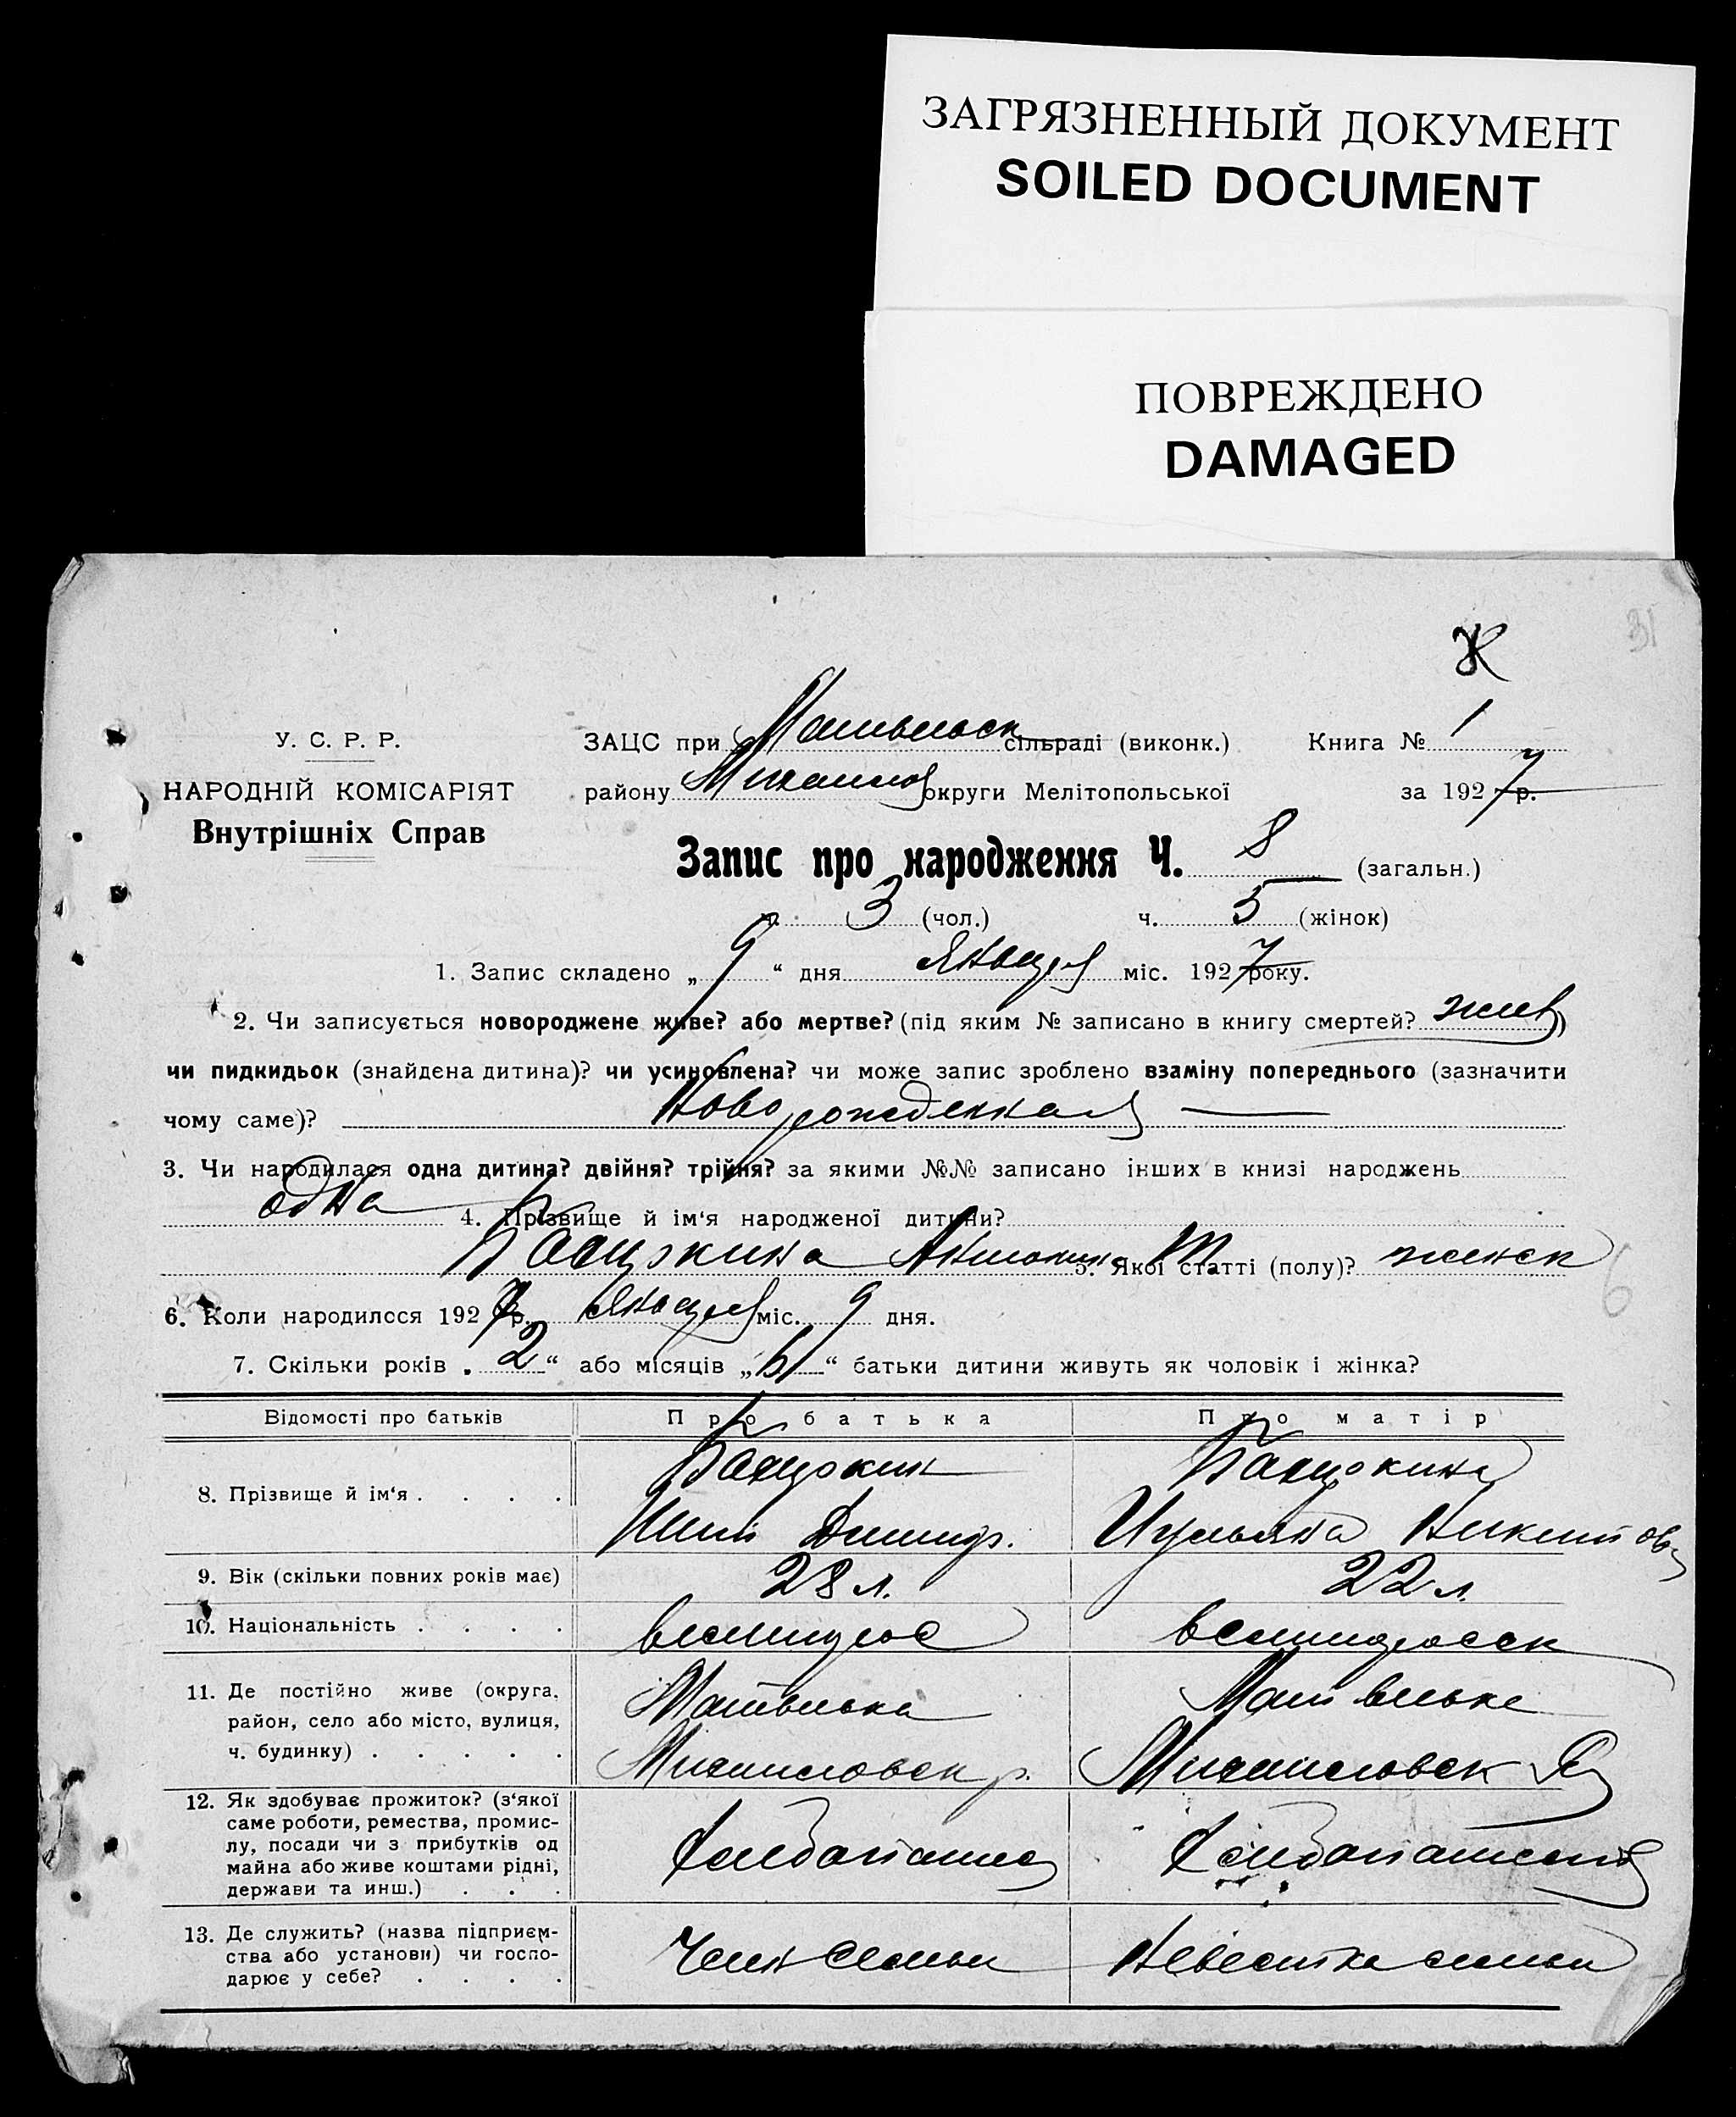 ЗАГРЯЗНЕННЫЙ ДОКУМЕНТ
SOILED DOCUMENT
ПОВРЕЖДЕНО
DAMAGED
31
Ж
У. С. Р. Р.
НАРОДНІЙ КОМІСАРІЯТ
Внутрішніх Справ
ЗАЦС при сільраді (виконк.) Книга № 1
району Михайлов округи Мелітопольської за 1927 р.
Запис про народження Ч. 8 (загальн.)
ч. 3 (чол.) ч. 5 (жінок)
1. Запис складено „ 9 “ дня Января міс. 1927 року.
2. Чи записується новороджене живе? або мертве? (під яким № записано в книгу смертей? жив)
чи пидкидьок (знайдена дитина)? чи усиновлена? чи може запис зроблено взаміну попереднього (зазначити
чому саме)? Новорожденная
3. Чи народилася одна дитина? двійня? трійня? за якими №№ записано інших в книзі народжень
одна 4. Прізвище й ім‘я народженої дитини?
Антонина 5. Якої статті (полу)? женск
6
6. Коли народилося 1927 р. Января міс. 9 дня.
7. Скільки років „ 2 “ або місяців „ “ батьки дитини живуть як чоловік і жінка?
Відомості про батьків Про батька Про матір
8. Прізвище й ім‘я . . . .
Дмитр. Никитова
9. Вік (скільки повних років має) 28 л. 22 л.
10. Національність . . . .
11. Де постійно живе (округа,
район, село або місто, вулиця,
ч. будинку) . . . . .
Матвеевка
Михайловск р. Михайловск
12. Як здобуває прожиток? (з‘якої
саме роботи, ремества, промис-
лу, посади чи з прибутків од
майна або живе коштами рідні,
держави та инш.) . . .
13. Де служить? (назва підприєм-
ства або установи) чи госпо-
дарює у себе? . . . .
Член семьи Невестка семьи